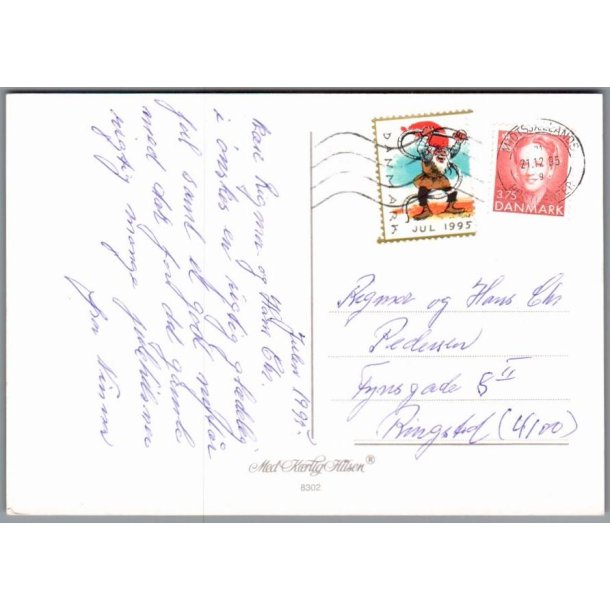 Julen 1995.
Kære Regma og Hans Chr.
I ønskes en rigtig glædelig
Jul samt et godt nytår
med tak for det gamle
rigtig mange
DANMARK
JUL 1995
21.12.95
3.75
DANMARK
Regma og Hans Chr
Pedersen
Fynsgade 8 II
Ringsted (4100)
Med Kærlig Hilsen®
8302